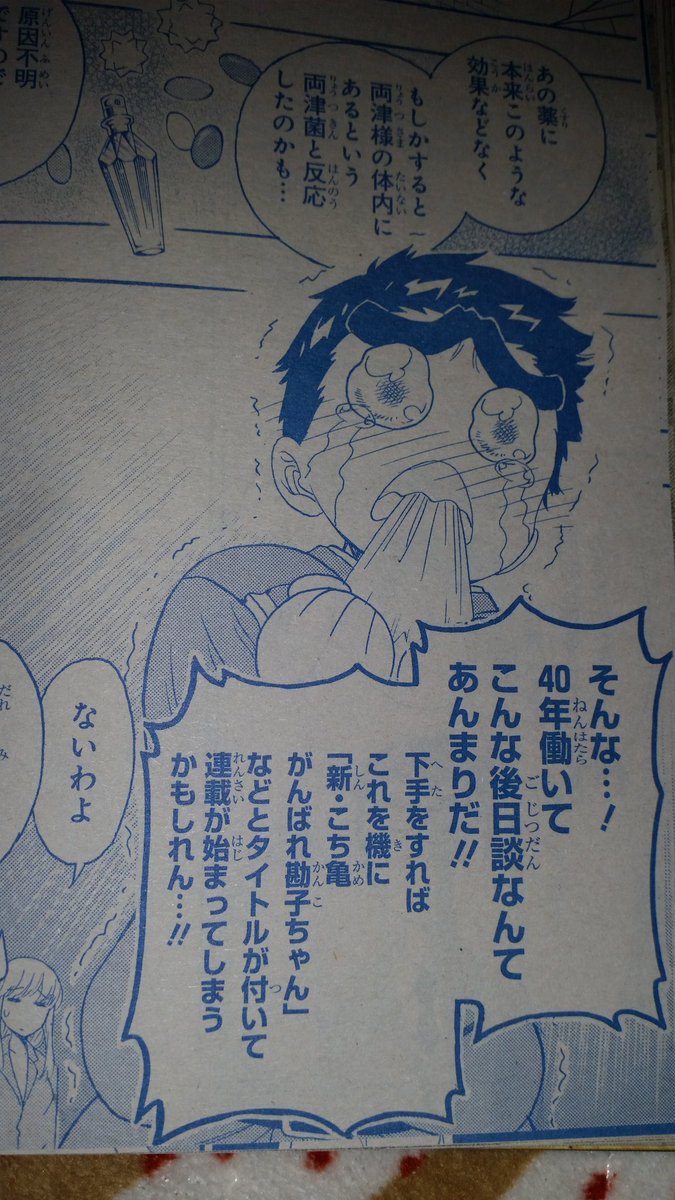 あの薬に
本来このような
効果などなく
もしかすると
両津様の体内に
あるという
両津菌と反応
したのかも…
原因不明
ですので
そんな…!
40年働いて
こんな後日談なんて
あんまりだ!!
下手をすれば
これを機に
「新・こち亀
がんばれ勘子ちゃん」
などとタイトルが付いて
連載が始まってしまう
かもしれん…!!
ないわよ